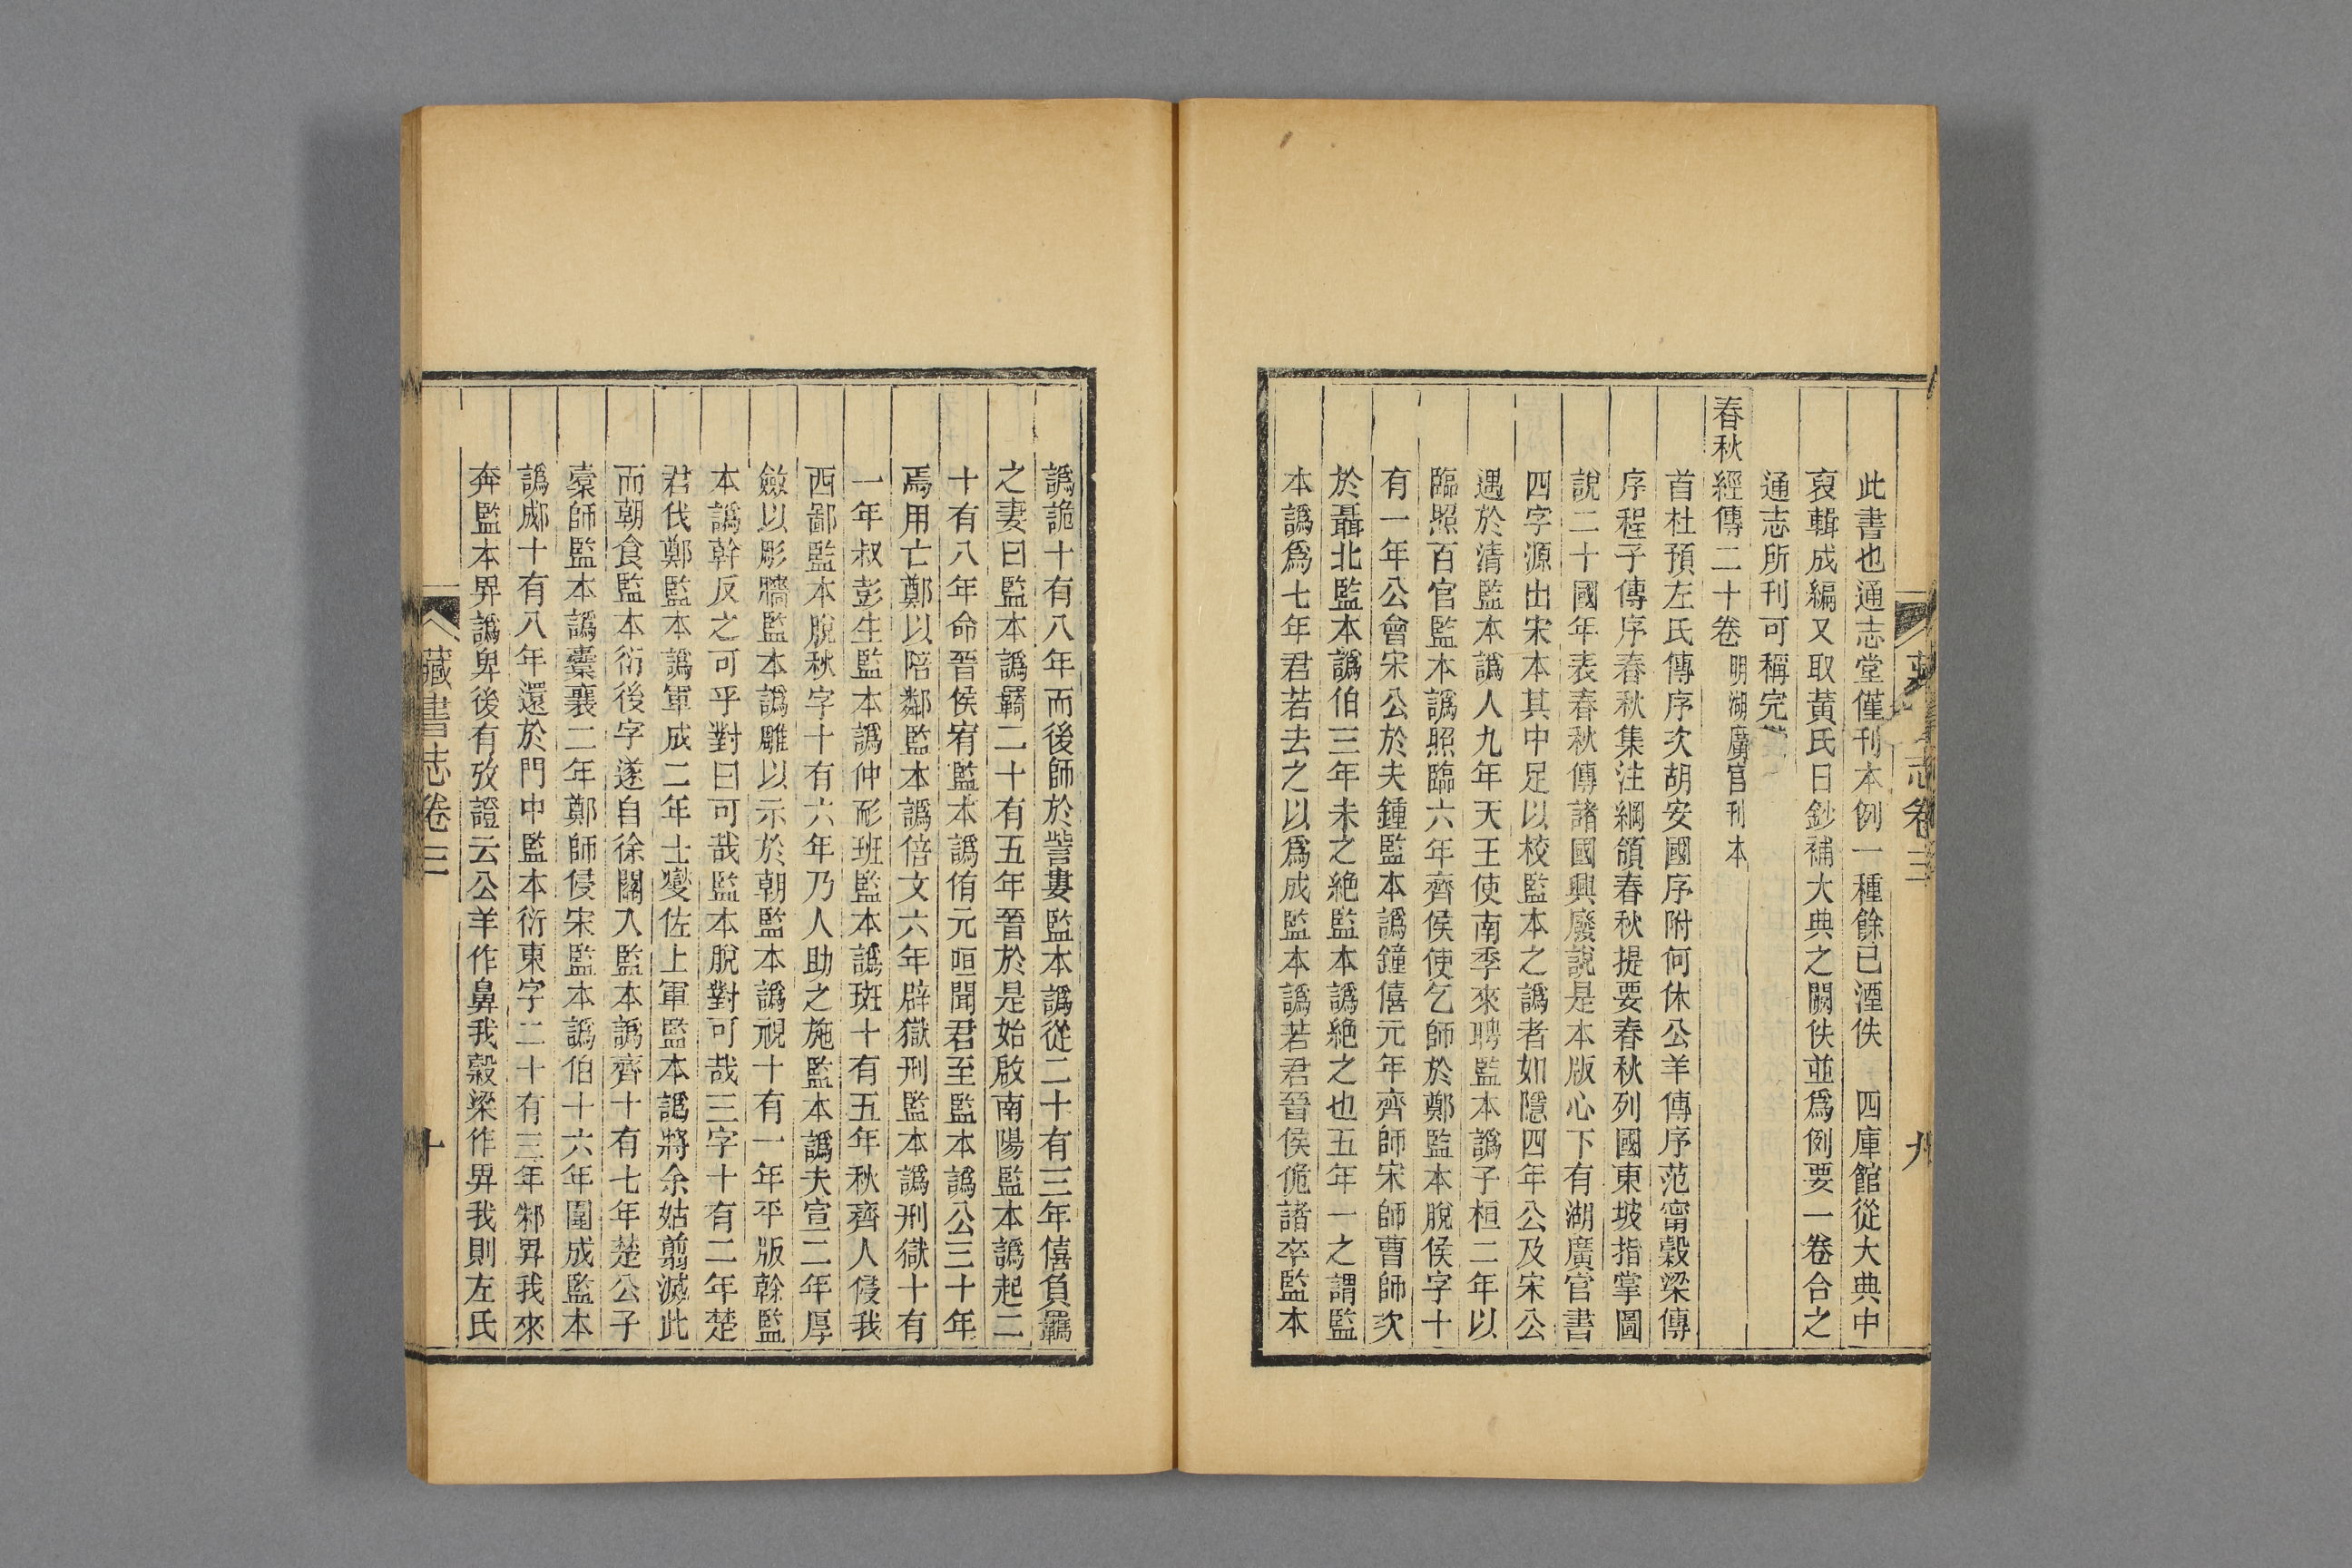 此書也通志堂僅刊本例一種餘已湮佚　四庫館從大典中
裒輯成編又取黃氏日鈔補大典之闕佚並爲例要一卷合之
通志所刊可稱完
春秋經傳二十卷明湖廣官刊本
首杜預左氏傳序次胡安國序附何休公羊傳序范甯穀梁傳
序程子傳序春秋集注綱領春秋提要春秋列國東坡指掌圖
說二十國年表春秋傳諸國興廢說是本版心下有湖廣官書
四字源出宋本其中足以校監本之譌者如隱四年公及宋公
遇於清監本譌人九年天王使南季來聘監本譌子桓二年以
臨照百官監本譌照臨六年齊侯使乞師於鄭監本脫侯字十
有一年公會宋公於夫鍾監本譌鐘僖元年齊師宋師曹師次
於聶北監本譌伯三年未之絶監本譌絶之也五年一之謂監
本譌爲七年君若去之以爲成監本譌若君晉侯佹諸卒監本
志卷三
九
譌詭十有八年而後師於訾婁監本譌從二十有三年僖負羈
之妻曰監本譌羇二十有五年晉於是始啟南陽監本譌起二
十有八年命晉侯宥監本譌侑元咺聞君至監本譌公三十年
焉用亡鄭以陪鄰監本譌倍文六年辟獄刑監本譌刑獄十有
一年叔彭生監本譌仲耏班監本譌斑十有五年秋齊人侵我
西鄙監本脫秋字十有六年乃人助之施監本譌夫宣二年厚
斂以彫牆監本譌雕以示於朝監本譌視十有一年平版榦監
本譌幹反之可乎對曰可哉監本脫對可哉三字十有二年楚
君伐鄭監本譌軍成二年士燮佐上軍監本譌將余姑翦滅此
而朝食監本衍後字遂自徐關入監本譌齊十有七年楚公子
橐師監本譌櫜襄二年鄭師侵宋監本譌伯十六年圍成監本
譌郕十有八年還於門中監本衍東字二十有三年邾畀我來
奔監本畀譌卑後有攷證云公羊作鼻我穀梁作畀我則左氏
藏書志卷三
十